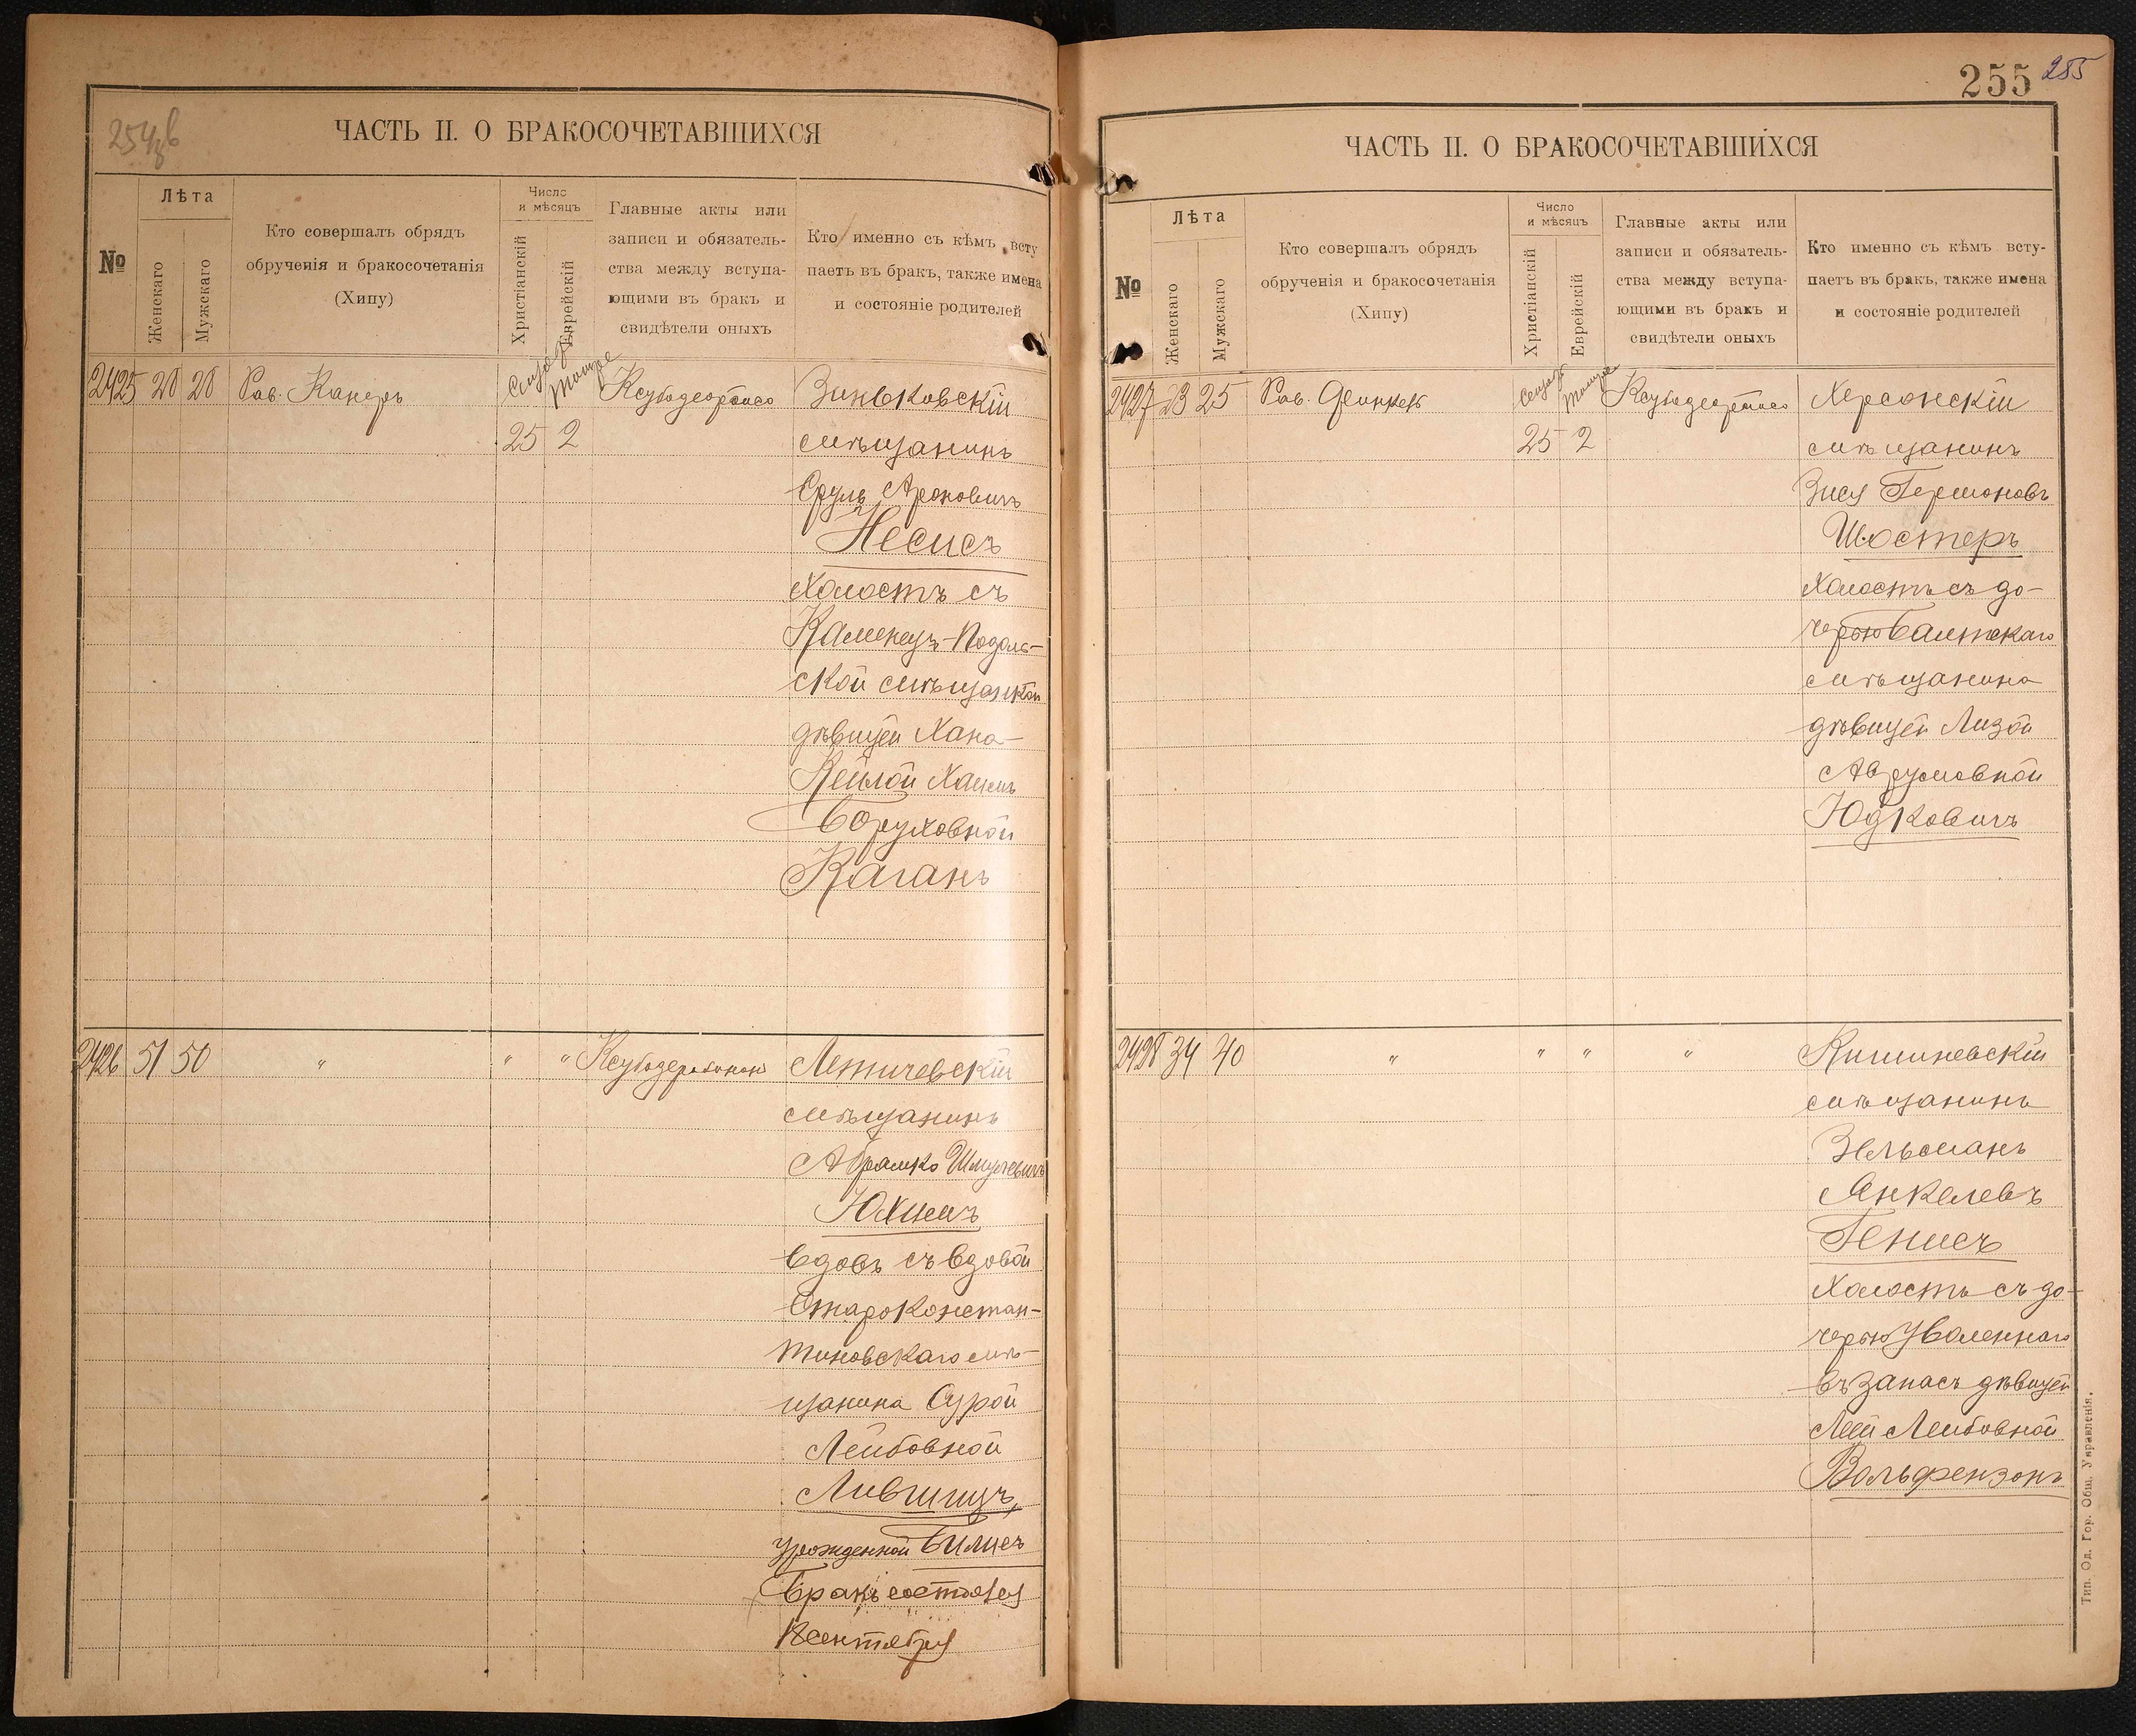 254 об
ЧАСТЬ II. О БРАКОСОЧЕТАВШИХСЯ
№
Лѣта
Женскаго
Мужскаго
Кто совершалъ обрядъ
обрученія и бракосочетанія
(Хипу)
Число
и мѣсяцъ
Христіанскій
Еврейскій
Главные акты или
записи и обязатель-
ства между вступа-
ющими въ бракъ и
свидѣтели оныхъ
Кто именно съ кѣмъ всту
паетъ въ бракъ, также имена
и состояніе родителей
2425 20 20 Рав. Канеръ
25 2
Зиньковскій
мѣщанинъ
Сруль Ароновичъ
Несисъ
холостъ съ
Каменецъ-Подоль-
ской мѣщанкой
дѣвицей Хана-
Кейлой Хаимъ
Боруховной
Каганъ
2426 51 50 " " "
Летичевскій
мѣщанинъ
Абрамко Шмулевичъ
Юхнеъ
вдовъ съ вдовой
Староконстан-
тиновскаго мѣ-
щанина Сурой
Лейбовной
Лившицъ,
урожденной Билисъ
Бракъ состоялся
сентября
255 255
ЧАСТЬ II. О БРАКОСОЧЕТАВШИХСЯ
№
Лѣта
Женскаго
Мужскаго
Кто совершалъ обрядъ
обрученія и бракосочетанія
(Хипу)
Число
и мѣсяцъ
Христіанскій
Еврейскій
Главные акты или
записи и обязатель-
ства между вступа-
ющими въ бракъ и
свидѣтели оныхъ
Кто именно съ кѣмъ всту-
паетъ въ бракъ, также имена
и состояніе родителей
2427 23 25 Рав.
25 2
Херсонскій
мѣщанинъ
Зися Гершоновъ
Шостеръ
холостъ съ до-
черью Балтскаго
мѣщанина
дѣвицей Лизой
Аврумовной
Юдковичъ
2428 34 40 " " " "
Кишиневскій
мѣщанинъ
Зельманъ
Янкелевъ
Генисъ
холостъ съ до-
черью уволеннаго
въ запасъ дѣвицей
Леей Лейбовной
Вольфензонъ
Тип. Од. Гор. Общ. Управленія.